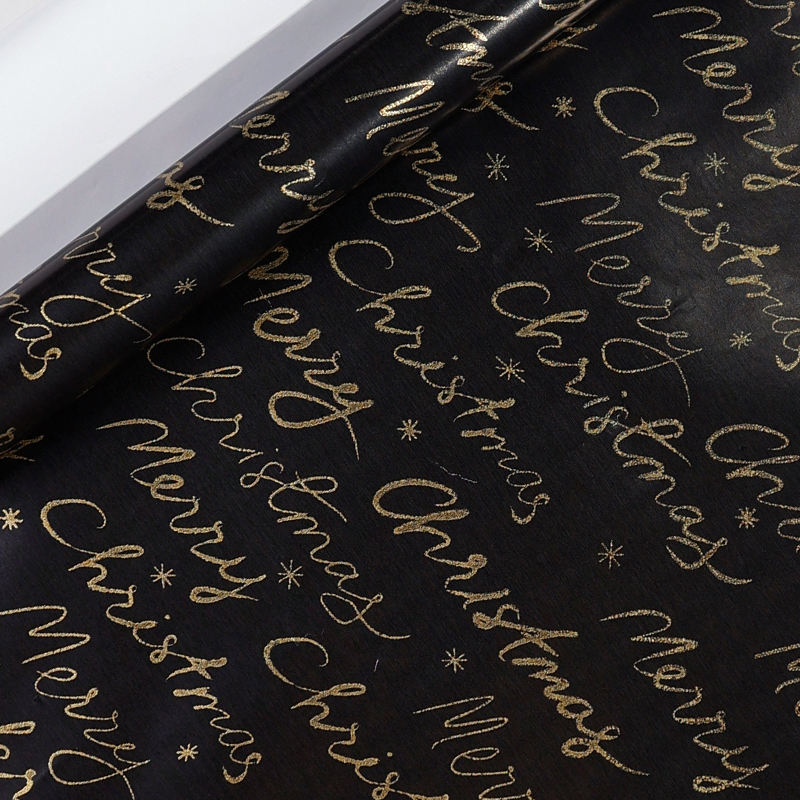 Merry
Christmas
Merry
Christmas
Merry
Christmas
Merry
Christmas
Merry
Christmas
Merry
Christmas
Merry
Christmas
Merry
Merry